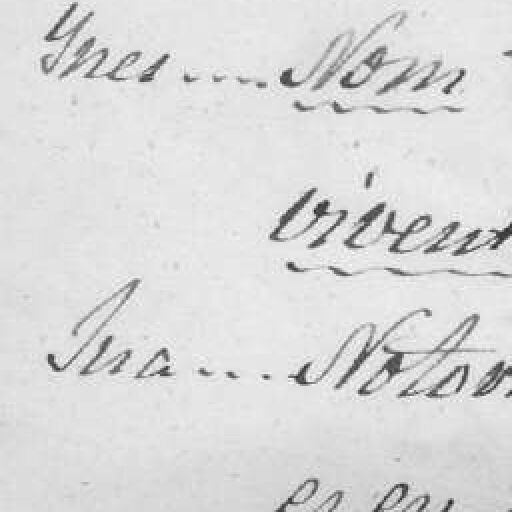 Ynes .... Nom
vivent
Ina .... Notoo
es en